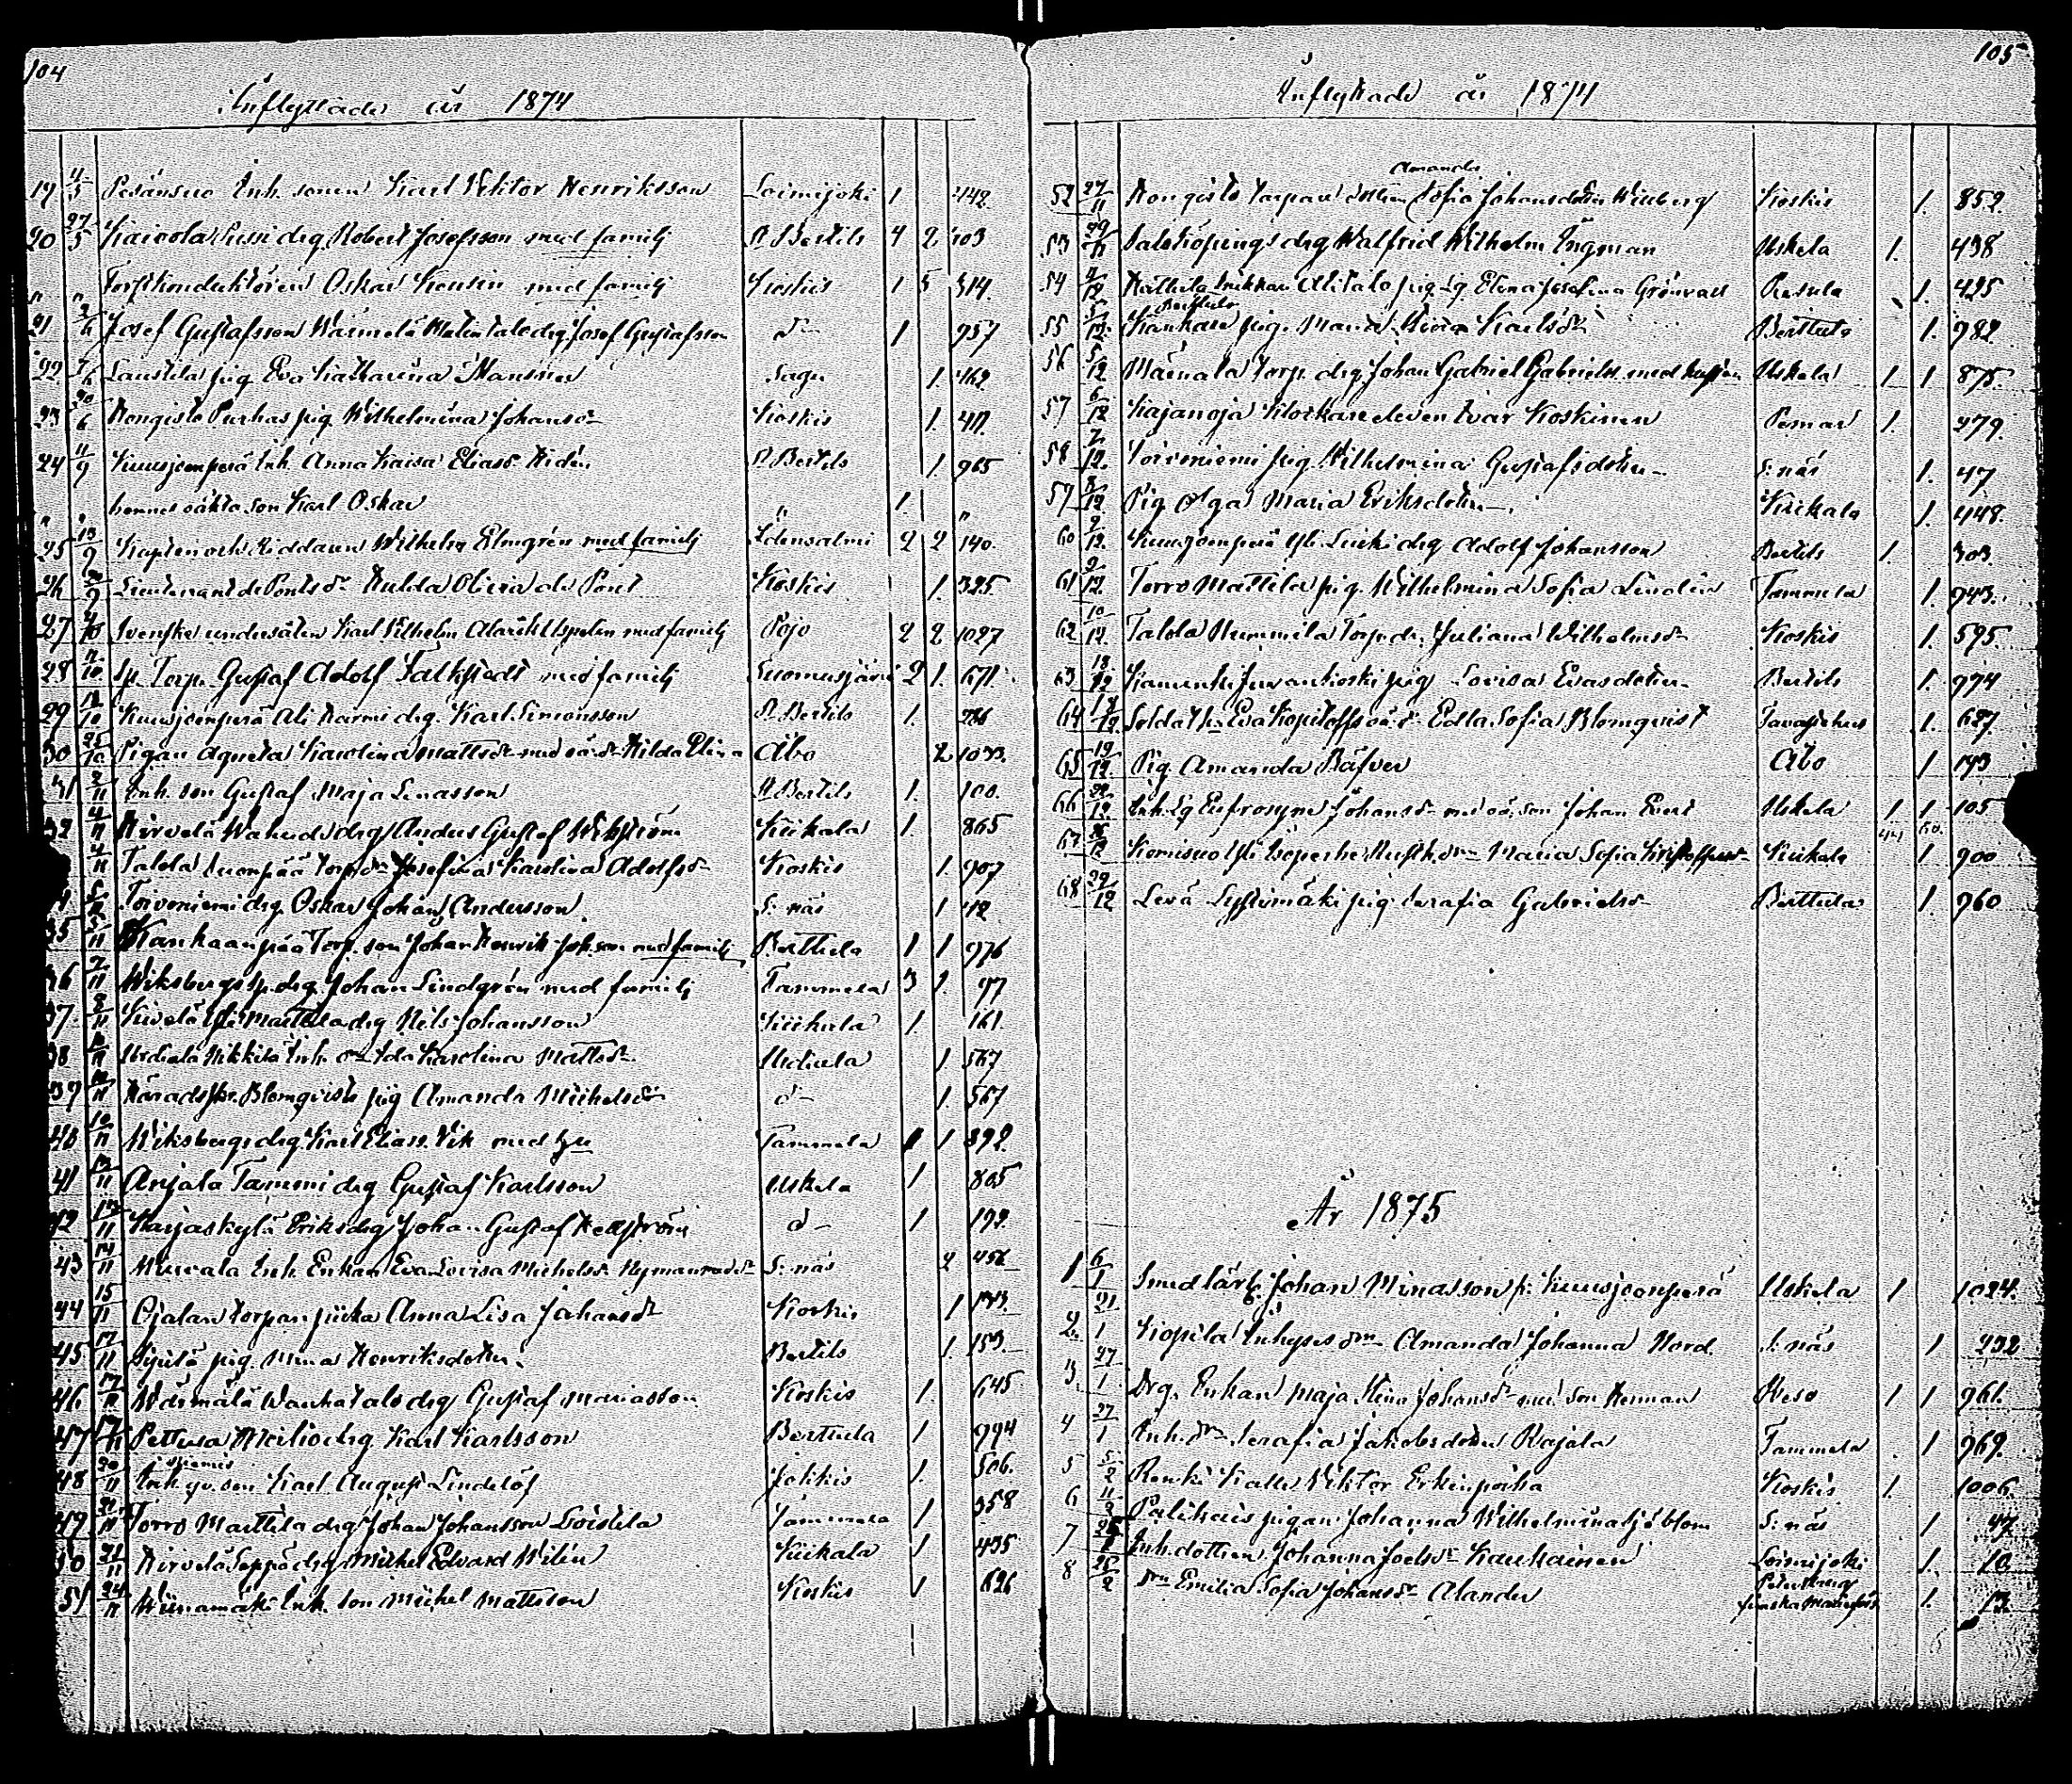 104
Inflyttade år 1874
19 4/5 Pesänsuo Inh. sonen Karl Viktor Henriksson Loimijoki 1 142.
20 27/5 drg Robert Josefsson med familj St Bertils 4 2 103
" " Forstkonduktören Oskar med familj Koskis 1 5 314.
21 2/6 Josef Gustafsson drg. Josef Gustafsson d- 1 957
22 7/6 Laustila pig Eva Katharina Sagu 1. 462
23 20/6 Hongisto Purhas pig Wilhelmina Johansd- Koskis 1. 411.
24 11/9 Kuusjoenperä Inh. Anna Kaisa Eliasd. St Bertils 1. 965
" " hennes oäkta son Karl Oskar " 1. "
25 13/9 Kapten och Riddaren Wilhelm Elmgrén med familj Idensalmi 2 2 140.
26 9 Lieutenant de Ponts dr Hulda Olivia de Pont Koskis 1. 325.
27 4/10 Svenske undersåten Karl Vilhelm med familj Pojo 2 2 1027
28 11/10 Sp. Torp. Gustaf Adolf Falkstedt med familj Suomusjärvi 2 1. 671.
29 10 Kuusjoenperä Ali Harmi drg. Karl Simonsson St Bertils 1. 286
30 25/10 Pigan Agneta Karolina Mattsdr med oä. dr Hilda Elina Åbo 2 1033.
31 2/11 Inh. son Gustaf Maja Lenasson St Bertils 1. 100.
32 4/11 Hirvelä drg Anders Gustaf Wikström Kiikala 1. 865
4/11 Talola torp dr Josefina Karolina Adolfsd- Koskis 1. 907
5/11 Toiveniemi drg. Oskar Johan Andersson S:näs 1 42
35 5/11 Kankaanpää Torp. son Johan Henrik Joh.son med familj Berttula 1 1 976
36 7/11 Wiksbergs sp. drg. Johan Lindgrén med familj Tammela 3 1. 97
37 8/11 Kivelä Yli Marttila drg Nils Johansson Kiikala 1. 161.
38 11 Inh. dr Ida Karolina Mattsdr 1 567
39 11 Häradsskr. Blomqvists pig Amanda Mickelsdr d- 1. 567
40 10/11 Wiksbergs drg. Karl Eliass. Vik med hu Tammela 1 1 392.
41 12/11 Anjala Tammi drg Gustaf Karlsson Uskela 1 805
42 12/11 Karjaskylä Eriks drg Johan Gustaf d- 1 192.
43 14/11 Inh. Enkan Eva Lovisa Michelsdr S:näs 2 456
44 15/11 Ojalan torpan piika Anna Lisa Johansdr Koskis 1 173.
45 17/11 pig. Mina Henriksdotter. Bertils 1. 153.
46 17/11 Wärmälä Wanhatalo drg Gustaf Mariasson Koskis 1. 645
47 17/11 Pettula Heikio drg. Karl Karlsson Berttula 1 994
48 20/11 Inh. gv. son Karl August Lindelöf Jokkis 1. 506.
49 21/11 Torro Marttila drg Johan Johansson Loistila Tammela 1 358
50 21/11 Hirvelä Seppä drg Mickel Edvard Wilén Kiikala 1 435
51 24/11 Wiinamäki Inh. son Mickel Mattsson Koskis 1 626
105
Inflyttade år 1874
Amanda
52 27/11 Hongisto Torpare dottern Sofia Johansdotter Winberg Koskis 1. 852.
53 29/11 Saloköpings drg Walfrid Wilhelm Ingman Uskela 1. 438
54 4/12 Alitalo pig. Lg Elena Josefina Grönvall 1. 425
55 5/12 Kankare pig. Maria Karlsdr Berttula 1. 982.
56 5/12 Torp. drg. Johan Gabriel Gabrielss med hustru Uskela 1 1 875.
57 6/12 Kajanoja Klockareeleven Ivar Koskinen Pemar 1. 279.
58 7/12 Toiveniemi pig. Wilhelmina Gustafsdotter- S:näs 1. 47
59 8/12 Pig Olga Maria Eriksdotter-. Kiikala 1. 448.
60 9/12 Kuusjoenperä Yli Luuki drg Adolf Johansson Bertils 1. 303.
61 9/12 Torro Mattila pig. Wilhelmina Sofia Lindén Tammela 1. 943.
62 10/12 Talola Nummila Torp. dr. Juliana Wilhelmsdr Koskis 1. 595.
63 13/12 pig Lovisa Evasdotter. Bertils 1. 974
64 18/12 Soldath. Eva Kopiloffs oä dr. Edla Sofia Blomqvist Tavastehus 1. 627.
65 19/12 Pig. Amanda Bäfver Åbo 1 143
66 22/12 Inh. Lg Eufrosyne Johansdr med oä. son Johan Evert Uskela 1 1. 105
44 60.
67 12 Komisuo Yli Maria Sofia Kristoffersdr Kiikala 1 900
68 29/12 Levä Syssimäki pig Serafia Gabrielsdr Berttula 1. 960
År 1875
1 6/1 Smedlärl. Johan Minasson fr. Kuusjoenperä Uskela 1 1024.
2. 21/1 Kopila Inhyses drn Amanda Johanna Nord. S:näs 1 232
3. 27/1 Drg. Enkan Maja Stina Johansdr med son Herman Reso 1 1 961.
4 27/1 Inh. dr. Serafia Jakobsdotter Rajala Tammela 1 969.
5 5/2 Renki Kalle Viktor Erkinpoika Koskis 1. 1006.
6 11/2 Palikais pigan Johanna Wilhelmina Sjöblom S:näs 1 47.
7 25/2 Inh. dottren Johanna Joelsdr Kauhainen Loimijoki 1. 10.
8 25/2 drn Emilia Sofia Johansdr Alander Petersburg finska Marie förs. 1. 13.